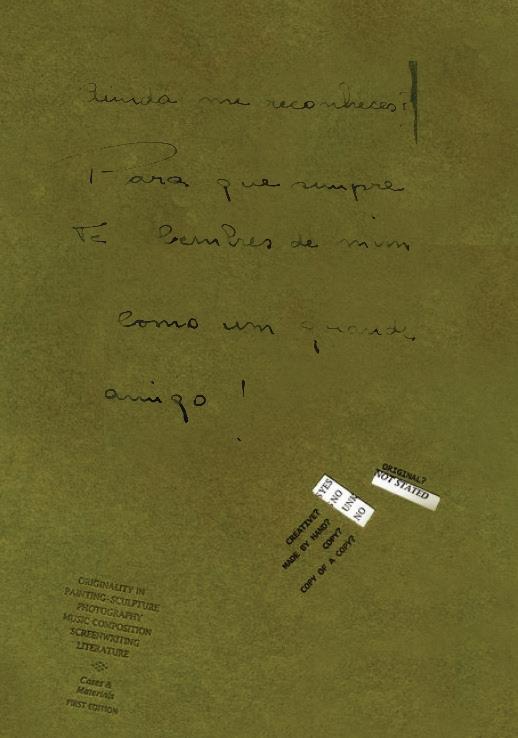 Ainda me reconheces?
Para que sempre
Te lembres de mim
como um grande
amigo!
ORIGINAL?
NOT STATED
CREATIVE? YES
MADE BY HAND? NO
COPY? UNK
COPY OF A COPY? NO
ORIGINALITY IN
PAINTING-SCULPTURE
PHOTOGRAPHY
MUSIC COMPOSITION
SCREENWRITING
LITERATURE
Cases &
Materials
FIRST EDITION